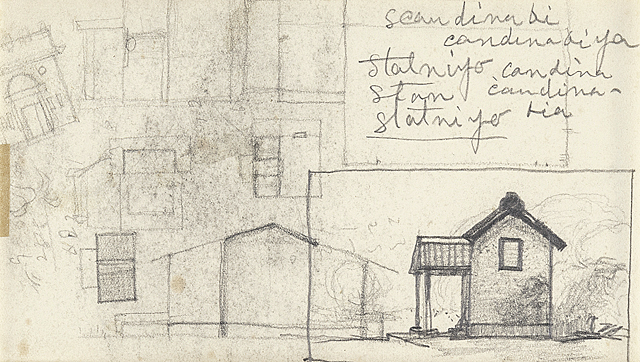 scandinabi
candinabiya
Stalniyo candina
Stan candina-
Stalniyo bia